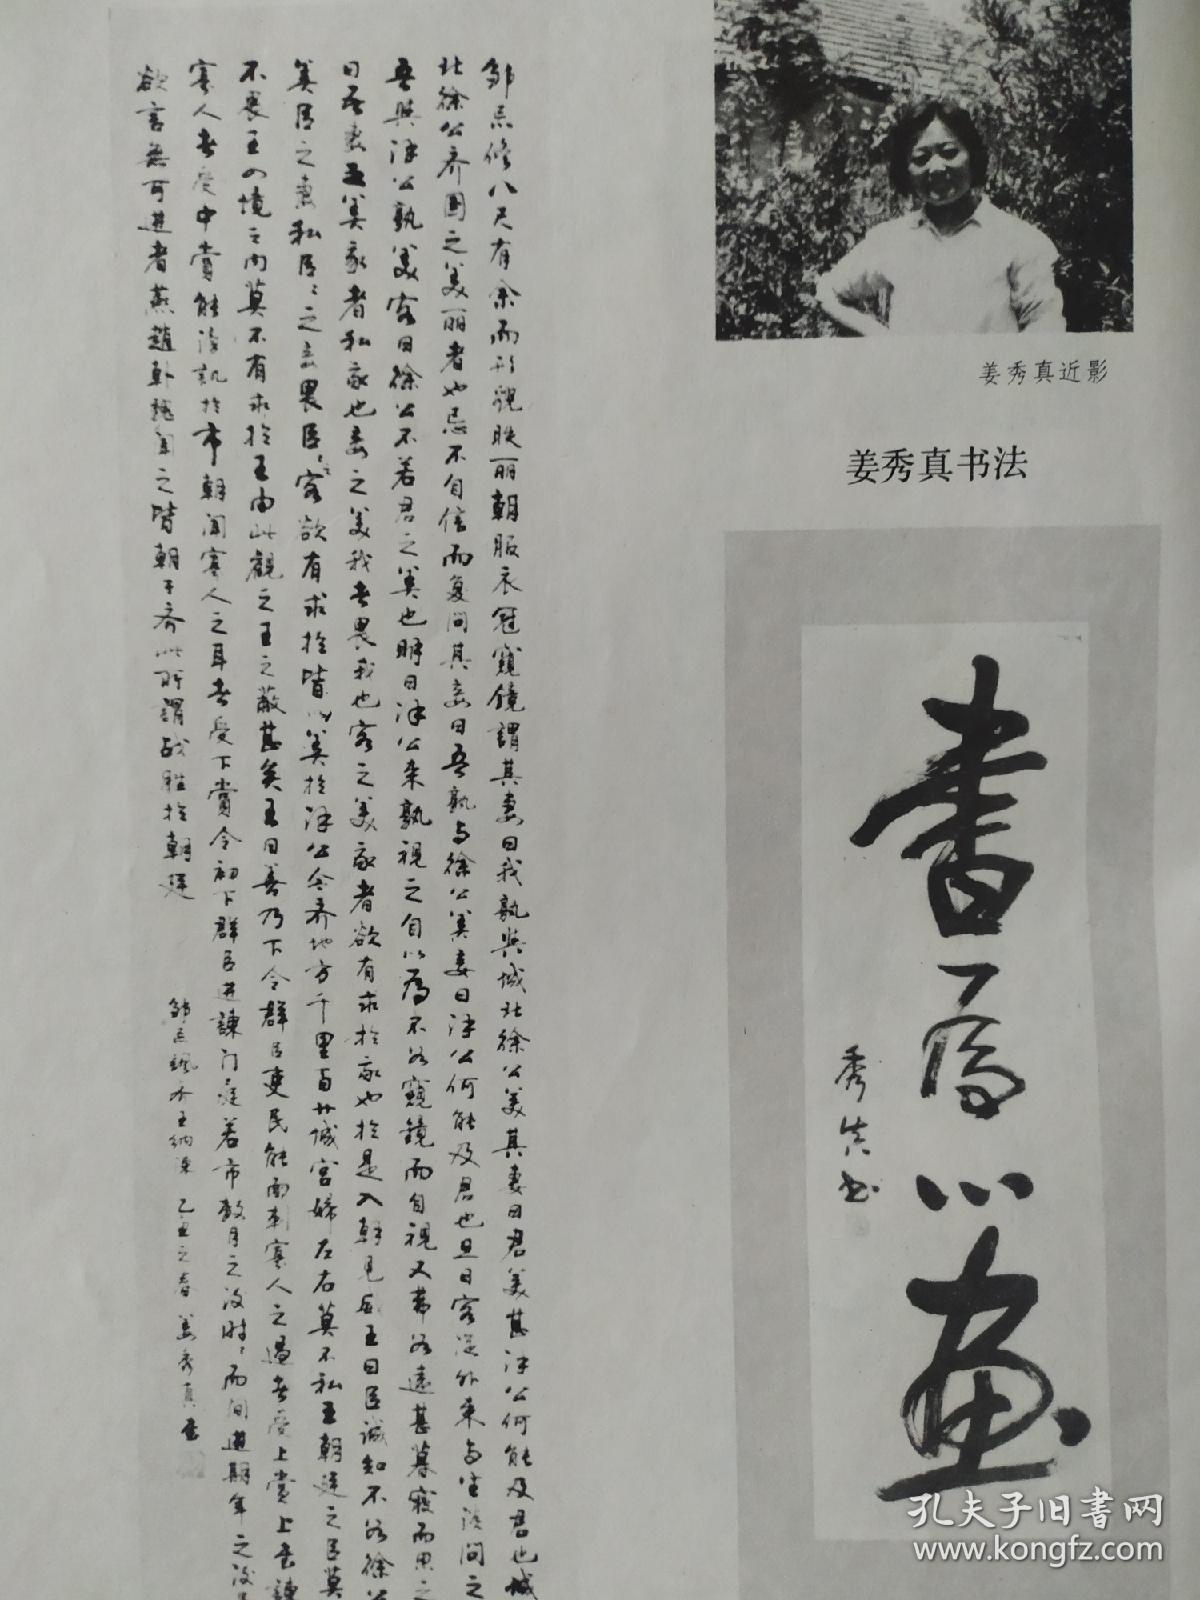 姜秀真近影
姜秀真书法
書為心画
秀真书
邹忌修八尺有余而形貌昳丽朝服衣冠窥镜謂其妻曰我孰與城北徐公美其妻曰君美甚徐公何能及君也城
北徐公齐国之美丽者也忌不自信而复问其妾曰吾孰与徐公美妾曰徐公何能及君也旦日客从外来与坐谈问之
吾與徐公孰美客曰徐公不若君之美也明日徐公来孰視之自以為不如窥鏡而自視又弗如遠甚暮寝而思之
曰吾妻之美我者私我也妾之美我者畏我也客之美我者欲有求於我也於是入朝見威王曰臣诚知不如徐公
美臣之妻私臣之妾畏臣客欲有求於皆以美於徐公今齐地方千里百廿城宫婦左右莫不私王朝廷之臣莫
不畏王四境之内莫不有求於王由此觀之王之蔽甚矣王曰善乃下令群臣吏民能面刺寡人之過者受上賞上書諫
寡人者受中賞能谤讥於市朝闻寡人之耳者受下賞令初下群臣进諫门庭若市数月之後时时而间進期年之後
欲言無可进者燕趙韩魏闻之皆朝于齐此所謂战胜於朝廷
邹忌諷齐王纳谏 乙丑之春 姜秀真书
孔夫子旧书网
www.kongfz.com